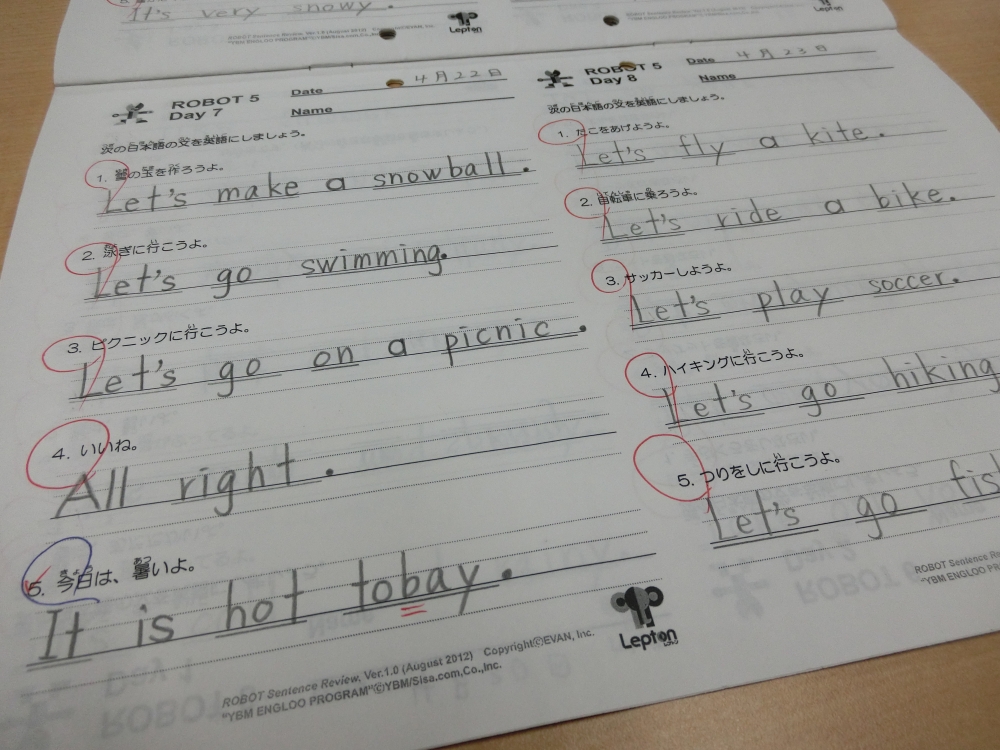 It's very snowy.
Lepton
ROBOT 5
Day 7
Date 4月22日
Name
次の日本語の文を英語にしましょう。
1. 雪の玉を作ろうよ。
Let's make a snowball.
2. 泳ぎに行こうよ。
Let's go swimming.
3. ピクニックに行こうよ。
Let's go on a picnic.
4. いいね。
All right.
5. 今日は、暑いよ。
It is hot tobay.
ROBOT Sentence Review, Ver.1.0 (August 2012) Copyright©EVAN, Inc.
"YBM ENGLOO PROGRAM"©YBM/Sisa.com,Co.,Inc.
Lepton
ROBOT 5
Day 8
Date 4月23日
Name
次の日本語の文を英語にしましょう。
1. たこをあげようよ。
Let's fly a kite.
2. 自転車に乗ろうよ。
Let's ride a bike.
3. サッカーしようよ。
Let's play soccer.
4. ハイキングに行こうよ。
Let's go hiking
5. つりをしに行こうよ。
Let's go fis
ROBOT Sentence Rev
"YBM ENGLOO PROGRAM"